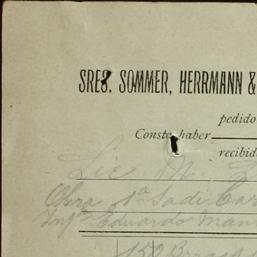 SRES. SOMMER, HERRMANN &
pedido
Conste haber
recibid
Lic M.
Obra 1a Sadi Car
Ingº Eduardo Man